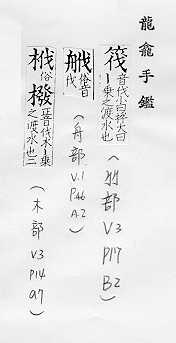 龍龕手鑑
筏音伐小曰桴大曰
丨乗之渡水也
(竹部 V3 P17 B2)
俗音伐
(舟部 V.1 P46 A.2)
栰俗橃正音伐木丨乗之渡水也二
(木部 V3 P14 a7)